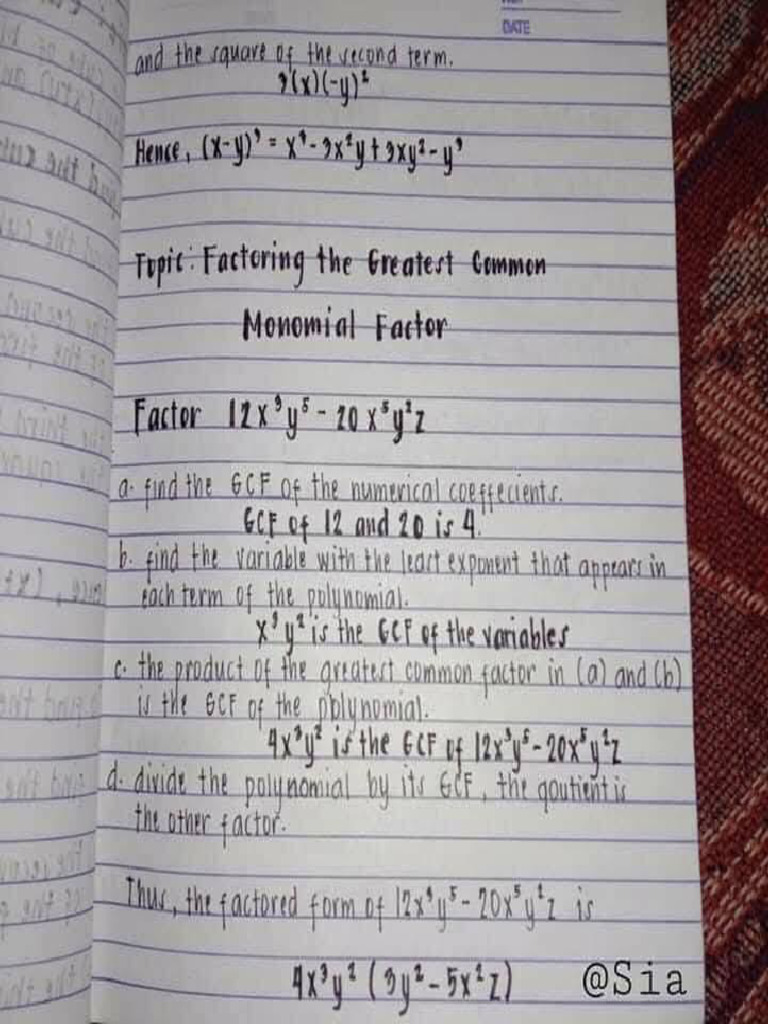 DATE
and the square of the second term.
3(x)(-y)²
Hence, (x-y)³ = x³ - 3x²y + 3xy² - y³
Topic: Factoring the Greatest Common
Monomial Factor
Factor 12x³y⁵ - 20x⁵y²z
a. find the GCF of the numerical coeffecients.
GCF of 12 and 20 is 4.
b. find the variable with the least exponent that appears in
each term of the polynomial.
x³y² is the GCF of the variables
c. the product of the greatest common factor in (a) and (b)
is the GCF of the polynomial.
4x³y² is the GCF of 12x³y⁵ - 20x⁵y²z
d. divide the polynomial by its GCF, the qoutient is
the other factor.
Thus, the factored form of 12x³y⁵ - 20x⁵y²z is
4x³y² (3y² - 5x²z)
@Sia